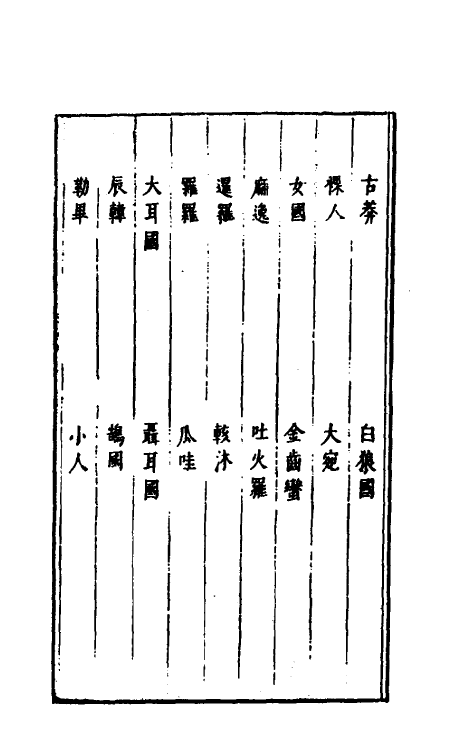 古莽 白狼國
裸人 大宛
女國 金齒蠻
麻逸 吐火羅
暹羅 輆沐
羅羅 瓜哇
大耳國 聶耳國
辰韓 鵠國
勒畢 小人